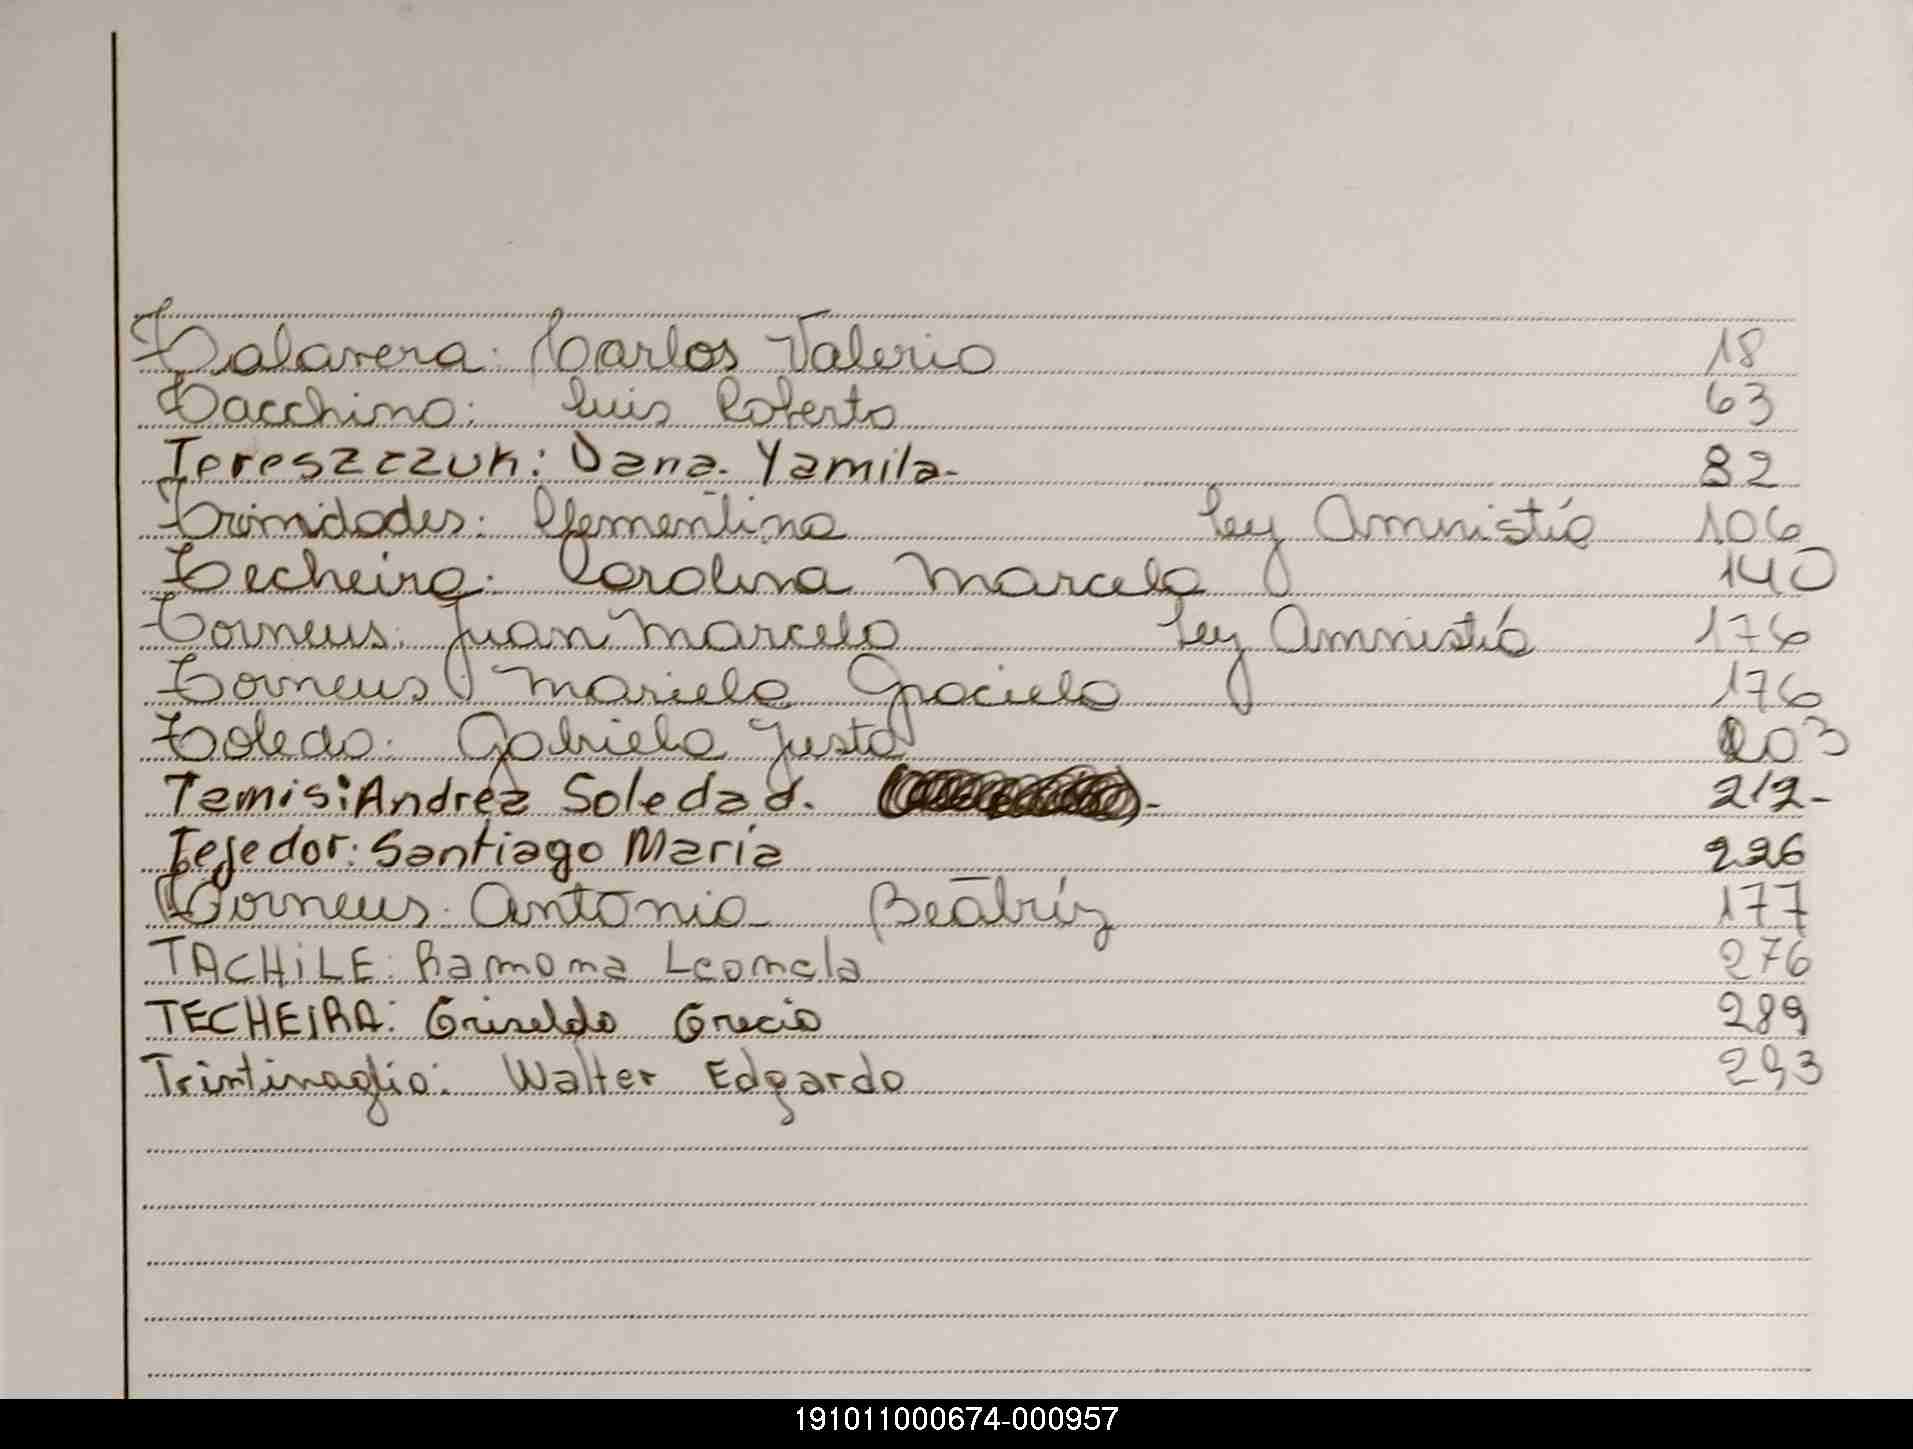 Talavera: Carlos Valerio 18
Tacchino: Luis Roberto 63
Tereszczuk: Dana. Yamila- 82
Trimidades: Clementina Ley Amnistía 106
Techeira: Carolina Marcela 140
Torneus: Juan Marcelo Ley Amnistía 176
Torneus: Mariela Graciela 176
Toledo: Gabriela Justa 203
Tamis: Andrea Soledad. 212-
Tejedor: Santiago María 226
Torneus: Antonia Beatríz 177
TACHiLE: Ramona Leonela 276
TECHEIRA: Griselda Grecia 289
Trintinaglio: Walter Edgardo 293
191011000674-000957